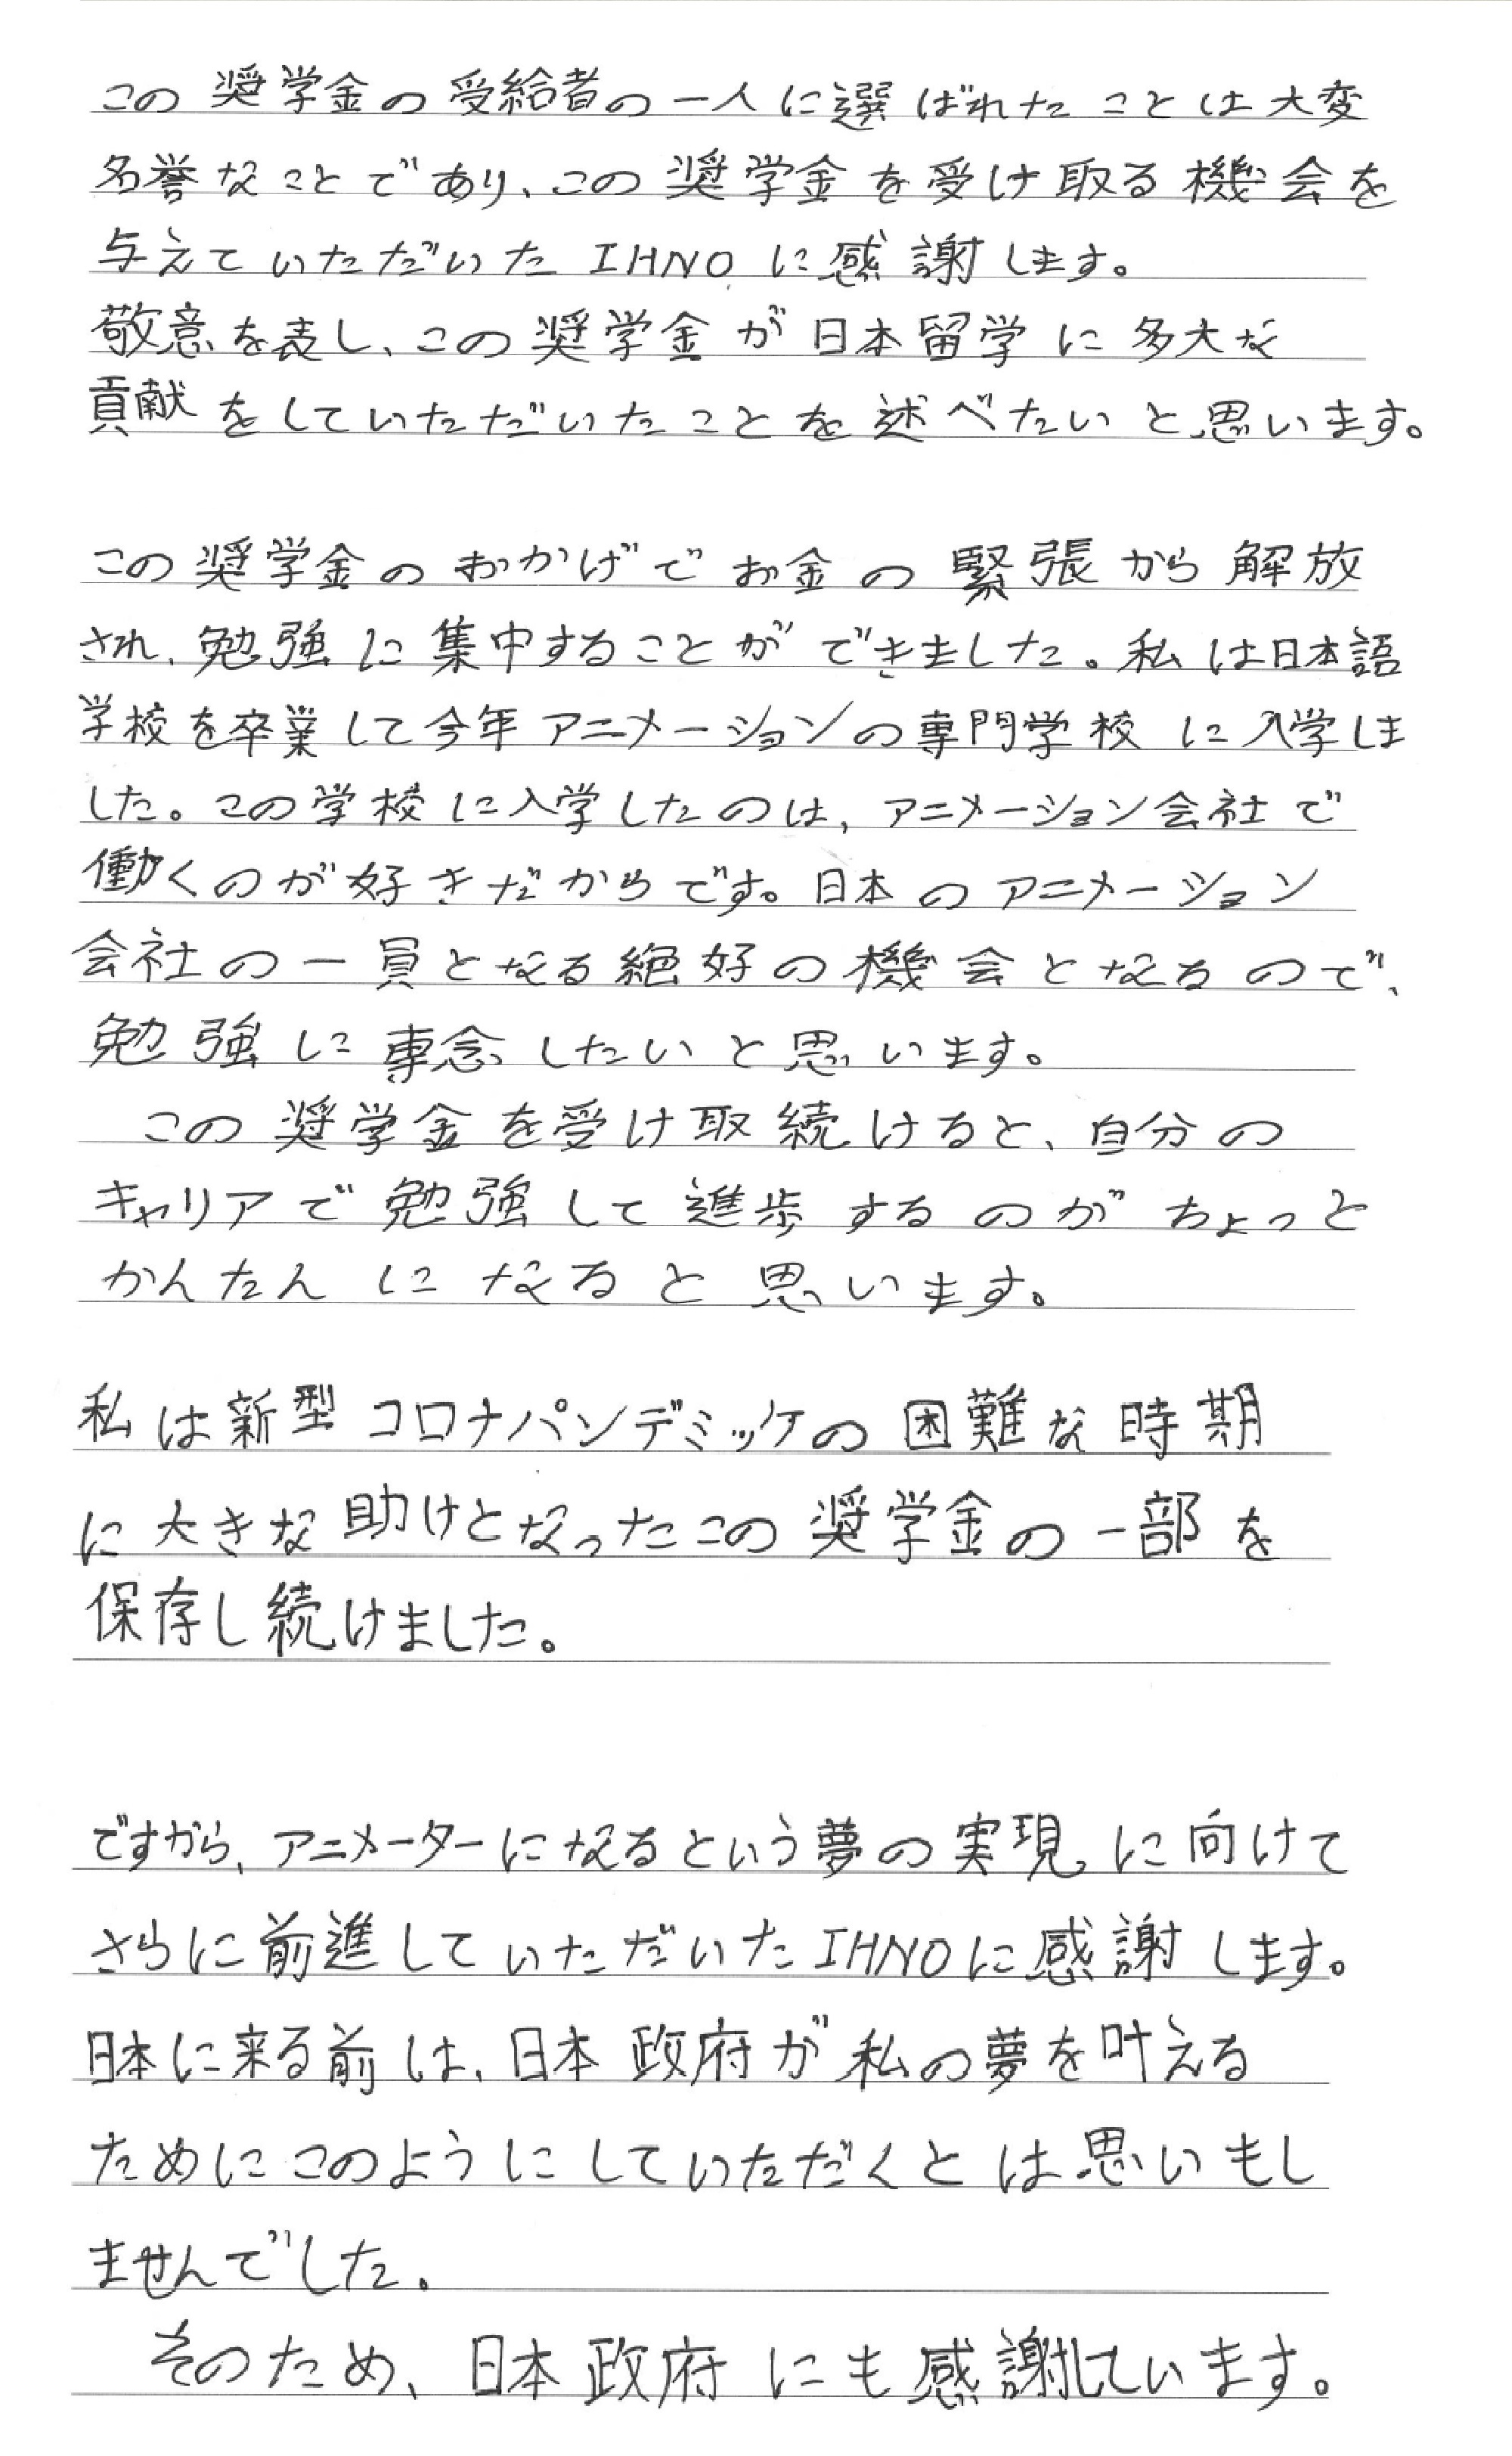 この奨学金の受給者の一人に選ばれたことは大変
名誉なことであり、この奨学金を受け取る機会を
与えていただいたIHNOに感謝します。
敬意を表し、この奨学金が日本留学に多大な
貢献をしていただいたことを述べたいと思います。
この奨学金のおかげでお金の緊張から解放
され、勉強に集中することができました。私は日本語
学校を卒業して今年アニメーションの専門学校に入学しま
した。この学校に入学したのは、アニメーション会社で
働くのが好きだからです。日本のアニメーション
会社の一員となる絶好の機会となるので、
勉強に専念したいと思います。
この奨学金を受け取続けると、自分の
キャリアで勉強して進歩するのがちょっと
かんたんになると思います。
私は新型コロナパンデミッケの困難な時期
に大きな助けとなったこの奨学金の一部を
保存し続けました。
ですから、アニメーターになるという夢の実現に向けて
さらに前進していただいたIHNOに感謝します。
日本に来る前は、日本政府が私の夢を叶える
ためにこのようにしていただくとは思いもし
ませんでした。
そのため、日本政府にも感謝しています。